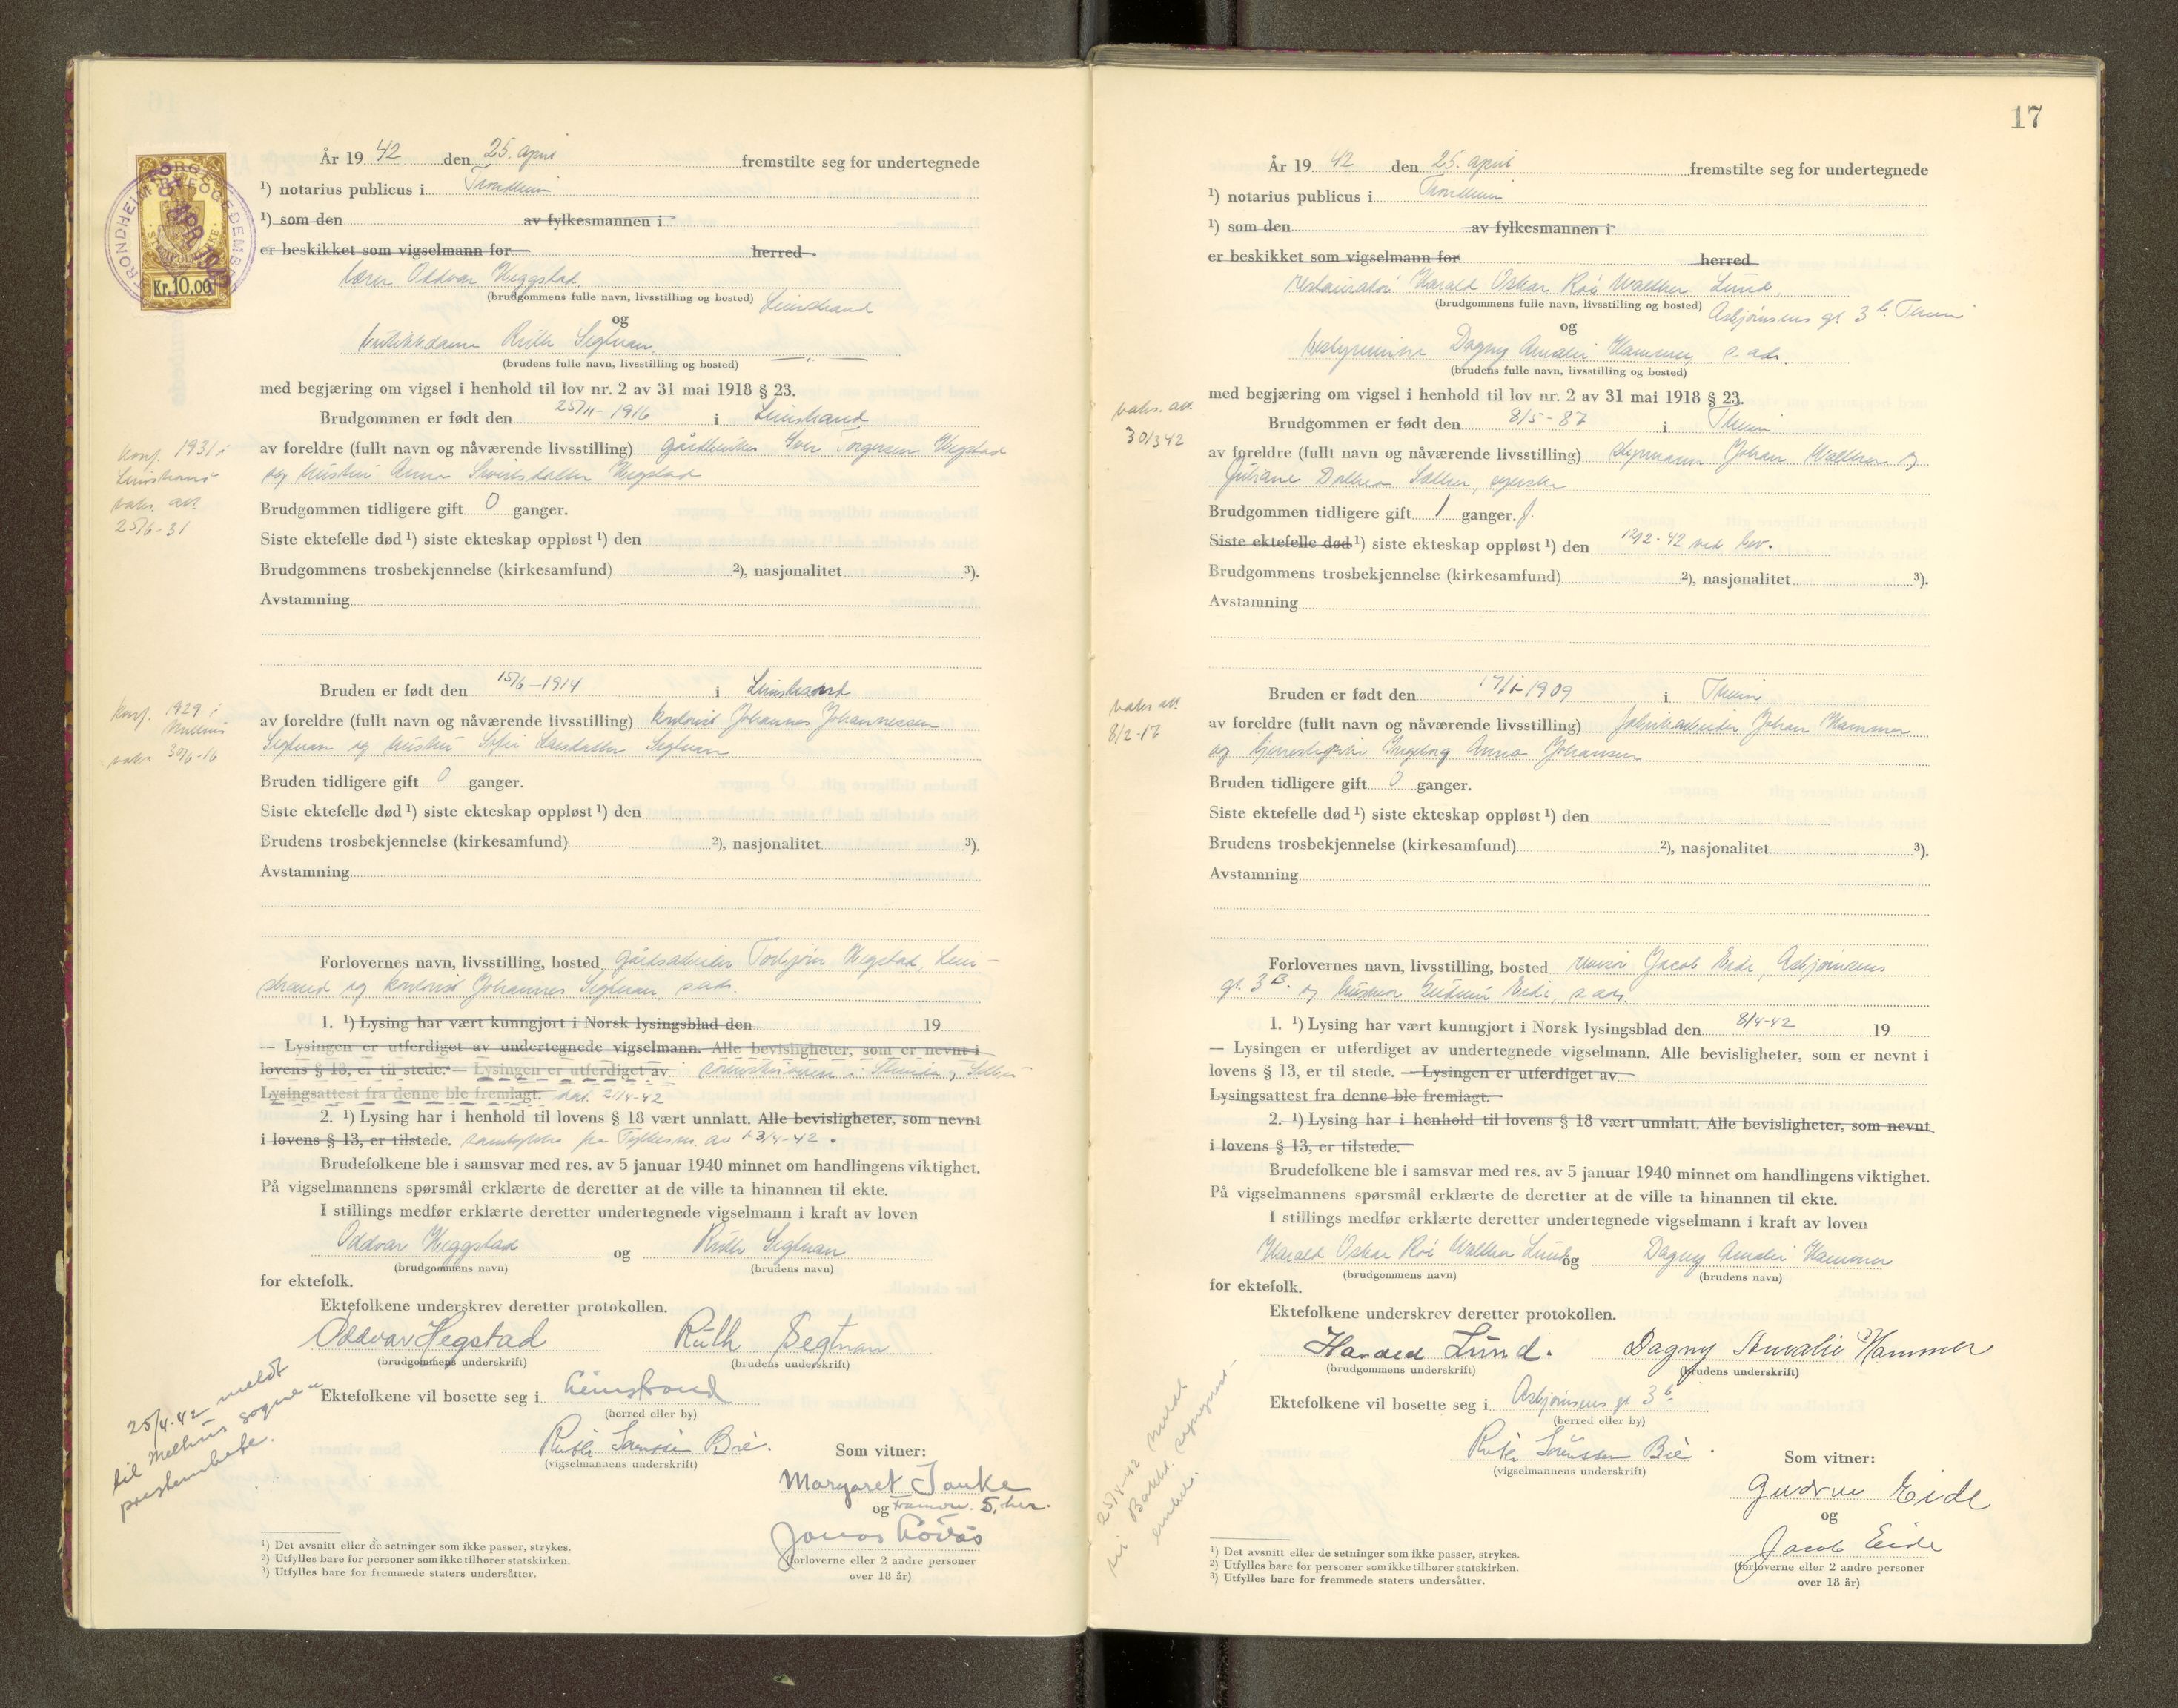 TRONDHEIM BORGERGEDEMBEDE
Kr.10.00
År 19 42 den 25. april fremstilte seg for undertegnede
¹) notarius publicus i Trondheim
¹) som den av fylkesmannen i
er beskikket som vigselmann for herred
lærer Oddvar Heggstad
(brudgommens fulle navn, livsstilling og bosted) Leinstrand
og
butikkdame Ruth Segtnan
(brudens fulle navn, livsstilling og bosted)
med begjæring om vigsel i henhold til lov nr. 2 av 31 mai 1918 § 23.
Brudgommen er født den 25/11-1916 i Leinstrand
konf. 1931 i
Leinstrand
vaks. att.
25/6-31
av foreldre (fullt navn og nåværende livsstilling) gårdbruker Iver Torgersen Hegstad
og hustru Anna Sivertsdatter Hegstad
Brudgommen tidligere gift 0 ganger.
Siste ektefelle død ¹) siste ekteskap oppløst ¹) den
Brudgommens trosbekjennelse (kirkesamfund) ²), nasjonalitet ³).
Avstamning
Bruden er født den 15/6-1914 i Leinstrand
konf. 1929 i
Melhus
vaks 30/6-16
av foreldre (fullt navn og nåværende livsstilling) kontorist Johannes Johannessen
Segtnan og hustru Sofie Larsdatter Segtnan
Bruden tidligere gift 0 ganger.
Siste ektefelle død ¹) siste ekteskap oppløst ¹) den
Brudens trosbekjennelse (kirkesamfund) ²), nasjonalitet ³).
Avstamning
Forlovernes navn, livsstilling, bosted gårdsarbeider Torbjörn Hegstad, Lein-
strand og kontorist Johannes Segtnan, s. ads.
1. ¹) Lysing har vært kunngjort i Norsk lysingsblad den 19
— Lysingen er utferdiget av undertegnede vigselmann. Alle bevisligheter, som er nevnt i
lovens § 13, er til stede. — Lysingen er utferdiget av sorenskriveren i Strinda og Selbu
Lysingsattest fra denne ble fremlagt. dat. 21/4-42
2. ¹) Lysing har i henhold til lovens § 18 vært unnlatt. Alle bevisligheter, som nevnt
i lovens § 13, er tilstede. samtykke fra Fylkesm. av 23/4-42.
Brudefolkene ble i samsvar med res. av 5 januar 1940 minnet om handlingens viktighet.
På vigselmannens spørsmål erklærte de deretter at de ville ta hinannen til ekte.
I stillings medfør erklærte deretter undertegnede vigselmann i kraft av loven
Oddvar Heggstad og Ruth Segtnan
(brudgommens navn) (brudens navn)
for ektefolk.
Ektefolkene underskrev deretter protokollen.
Oddvar Hegstad Ruth Segtnan
(brudgommens underskrift) (brudens underskrift)
Ektefolkene vil bosette seg i Leinstrand
(herred eller by)
25/4-42 meldt
til Melhus sogne-
prestembete.
(vigselmannens underskrift)
Som vitner:
Margaret Tanke
og
Jonas
(forloverne eller 2 andre personer
over 18 år)
¹) Det avsnitt eller de setninger som ikke passer, strykes.
²) Utfylles bare for personer som ikke tilhører statskirken.
³) Utfylles bare for fremmede staters undersåtter.
17
År 19 42 den 25. april fremstilte seg for undertegnede
¹) notarius publicus i Trondheim
¹) som den av fylkesmannen i
er beskikket som vigselmann for herred
restauratør Harald Oskar Roi Walther Lund,
(brudgommens fulle navn, livsstilling og bosted) Asbjörnsens gt. 3 b. Theim
og
bestyrerinne Dagny Amalie Hammer, s. ads.
(brudens fulle navn, livsstilling og bosted)
med begjæring om vigsel i henhold til lov nr. 2 av 31 mai 1918 § 23.
vaks. att.
30/3 42
Brudgommen er født den 8/5-87 i Theim
av foreldre (fullt navn og nåværende livsstilling) styrmann Johan Walther og
Juliane Dorthea Sæther, syerske
Brudgommen tidligere gift 1 ganger. f.
Siste ektefelle død ¹) siste ekteskap oppløst ¹) den 12/2-42 ved bev.
Brudgommens trosbekjennelse (kirkesamfund) ²), nasjonalitet ³).
Avstamning
Bruden er født den 17/1-1909 i Theim
vaks att.
8/2-17
av foreldre (fullt navn og nåværende livsstilling) fabrikkarbeider Johan Hammer
og tjenestepike Ingeborg Anna Johansen
Bruden tidligere gift 0 ganger.
Siste ektefelle død ¹) siste ekteskap oppløst ¹) den
Brudens trosbekjennelse (kirkesamfund) ²), nasjonalitet ³).
Avstamning
Forlovernes navn, livsstilling, bosted revisor Jacob Eide, Asbjörnsens
gt. 3 B. og husmor Gudrun Eide, s. ads.
1. ¹) Lysing har vært kunngjort i Norsk lysingsblad den 8/4-42 19
— Lysingen er utferdiget av undertegnede vigselmann. Alle bevisligheter, som er nevnt i
lovens § 13, er til stede. — Lysingen er utferdiget av
Lysingsattest fra denne ble fremlagt.
2. ¹) Lysing har i henhold til lovens § 18 vært unnlatt. Alle bevisligheter, som nevnt
i lovens § 13, er tilstede.
Brudefolkene ble i samsvar med res. av 5 januar 1940 minnet om handlingens viktighet.
På vigselmannens spørsmål erklærte de deretter at de ville ta hinannen til ekte.
I stillings medfør erklærte deretter undertegnede vigselmann i kraft av loven
Harald Oskar Roi Walther Lund og Dagny Amalie Hammer
(brudgommens navn) (brudens navn)
for ektefolk.
Ektefolkene underskrev deretter protokollen.
Harald Lund. Dagny Amalie Hammer
(brudgommens underskrift) (brudens underskrift)
Ektefolkene vil bosette seg i Asbjörnsens gt 3 b.
(herred eller by)
25/4-42 meldt
til Bakkl. sogneprest
embede.
(vigselmannens underskrift)
Som vitner:
Gudrun Eide
og
Jacob Eide
(forloverne eller 2 andre personer
over 18 år)
¹) Det avsnitt eller de setninger som ikke passer, strykes.
²) Utfylles bare for personer som ikke tilhører statskirken.
³) Utfylles bare for fremmede staters undersåtter.